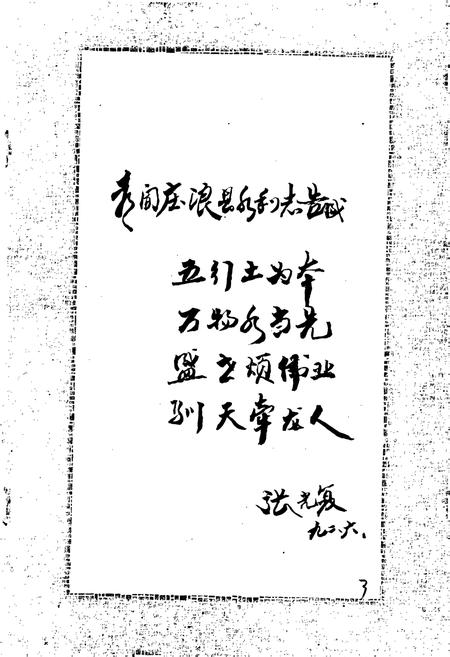 喜闻庄浪县水利志告成
五行土为本
万物水当先
盛世颂伟业
驯天牵龙人
张光复
九二.六.
3